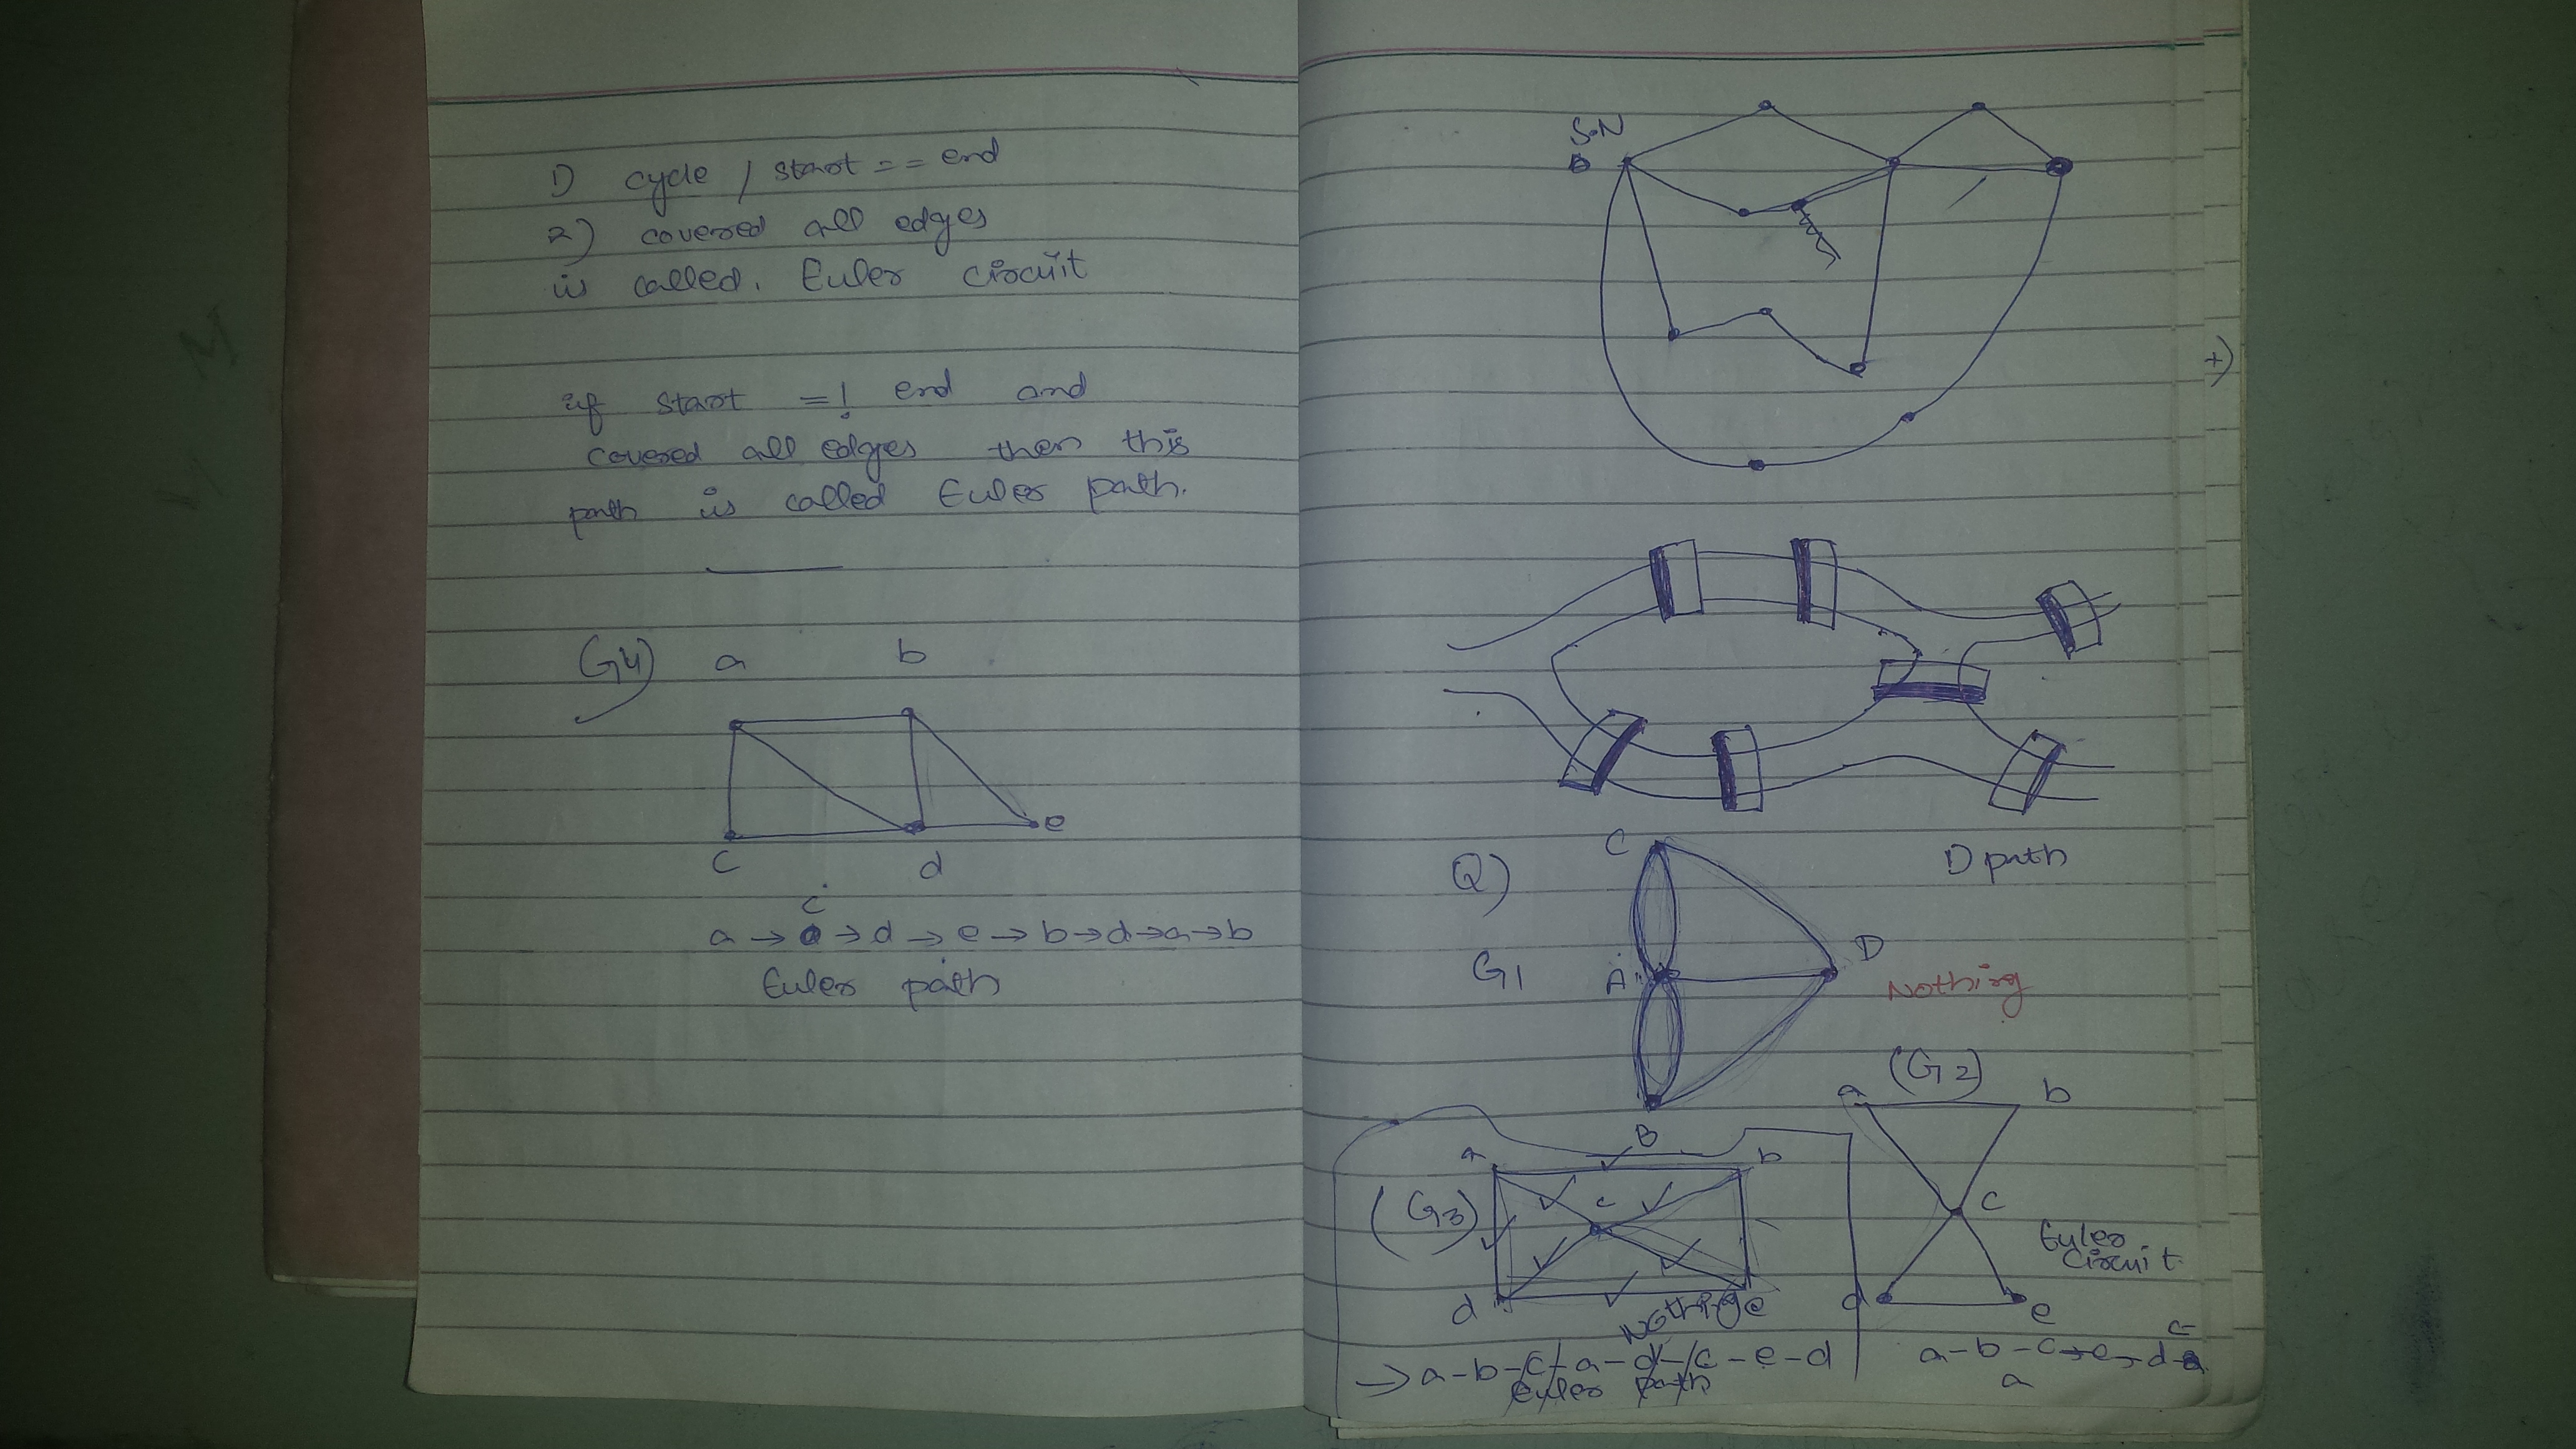 1) cycle / start == end
2) covered all edges
is called. Euler circuit
if start =! end and
covered all edges then this
path is called Euler path.
G4) a b
e
c d
c
a → → d → e → b → d → a → b
Euler path
S.N
+)
Q)
C
1) path
G1
A
D
Nothing
B
(G2)
a b
c
d e
Euler
Circuit.
a - b - c → e → d c
a
(G3)
a b
c
d e
Nothing
→ a - b - c - a - d - c - e - d
Euler path